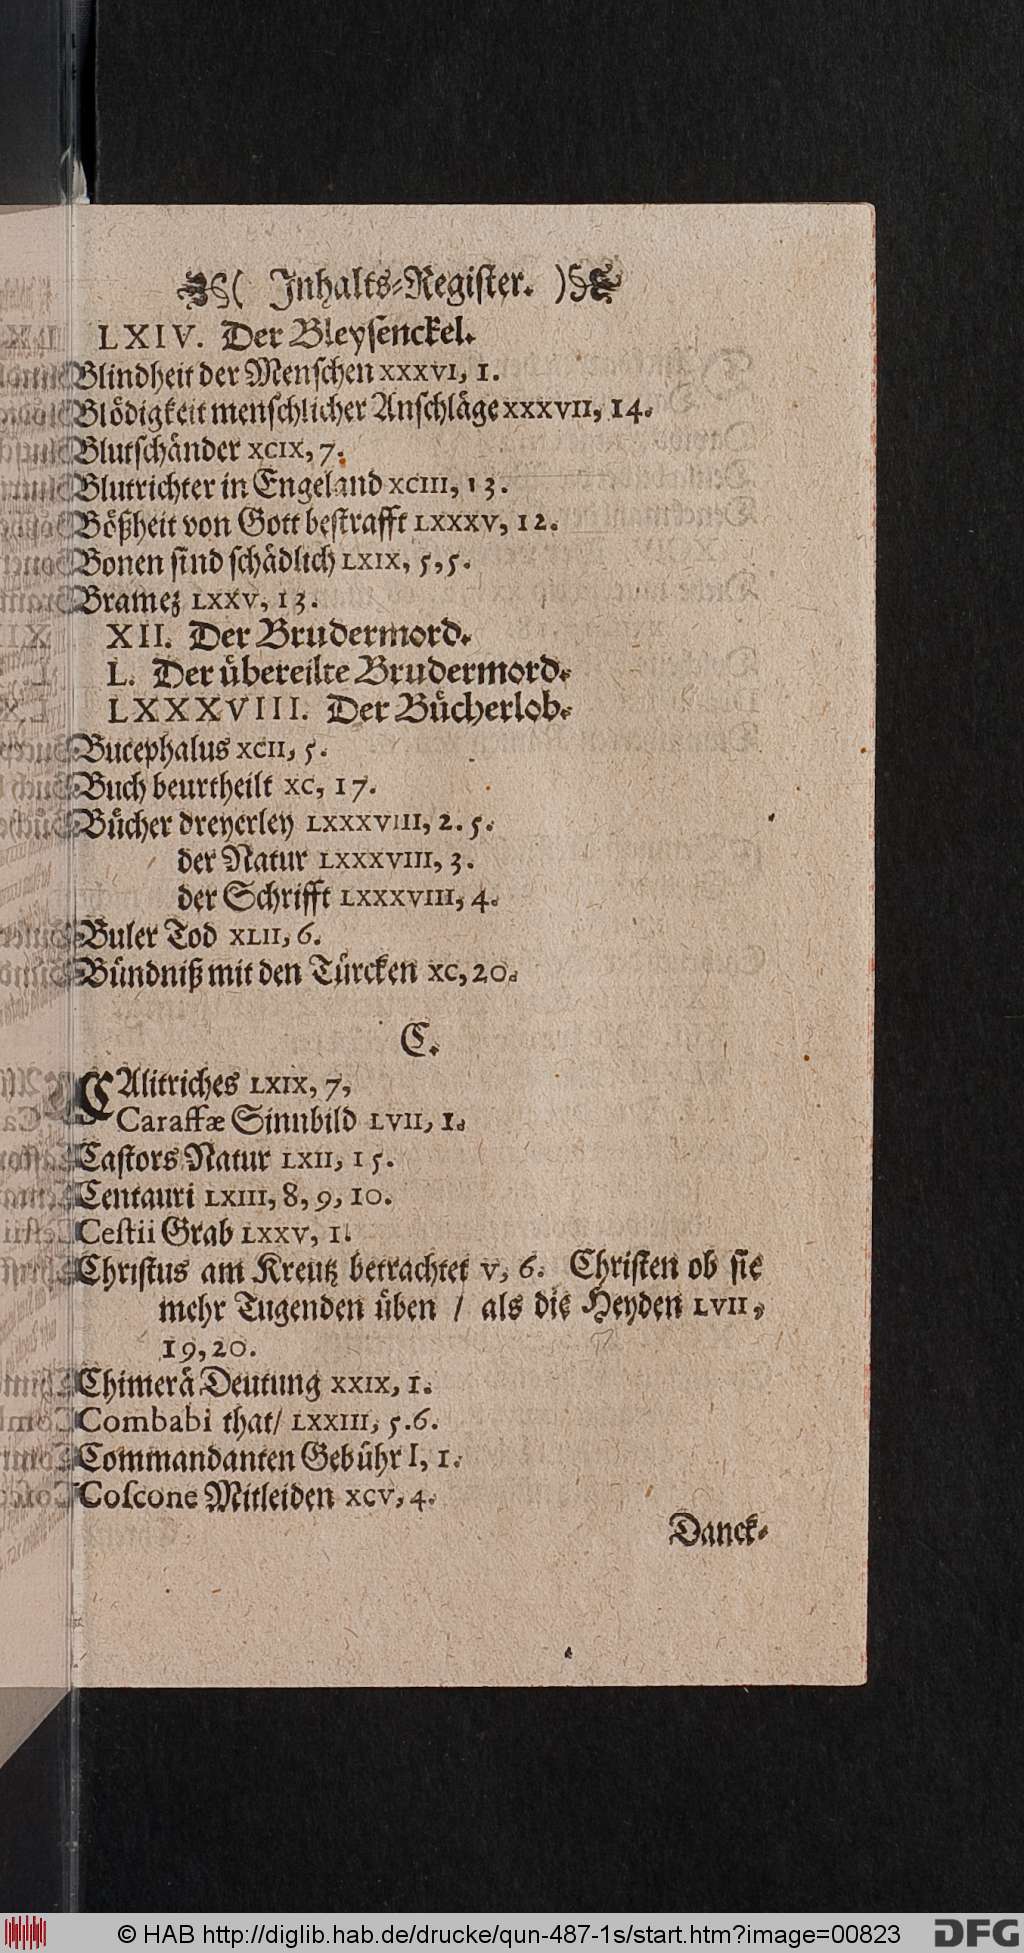 ( Inhalts-Regiſter. )
LXIV. Der Bleyſenckel.
Blindheit der Menſchen XXXVI, 1.
Blödigkeit menſchlicher Anſchläge XXXVII, 14.
Blutſchänder XCIX, 7.
Blutrichter in Engeland XCIII, 13.
Bößheit von Gott beſtrafft LXXXV, 12.
Bonen ſind ſchädlich LXIX, 5,5.
Bramez LXXV, 13.
XII. Der Brudermord.
L. Der übereilte Brudermord.
LXXXVIII. Der Bücherlob.
Bucephalus XCII, 5.
Buch beurtheilt XC, 17.
Bücher dreyerley LXXXVIII, 2. 5.
der Natur LXXXVIII, 3.
der Schrifft LXXXVIII, 4.
Buler Tod XLII, 6.
Bündniß mit den Türcken XC, 20.
C.
CAlitriches LXIX, 7,
Caraffæ Sinnbild LVII, 1.
Caſtors Natur LXII, 15.
Centauri LXIII, 8, 9, 10.
Ceſtii Grab LXXV, 1.
Chriſtus am Kreutz betrachtet V, 6. Chriſten ob ſie
mehr Tugenden üben / als die Heyden LVII,
19, 20.
Chimerä Deutung XXIX, 1.
Combabi that/ LXXIII, 5.6.
Commandanten Gebühr I, 1.
Coſcone Mitleiden XCV, 4.
Danck-
© HAB http://diglib.hab.de/drucke/qun-487-1s/start.htm?image=00823
DFG